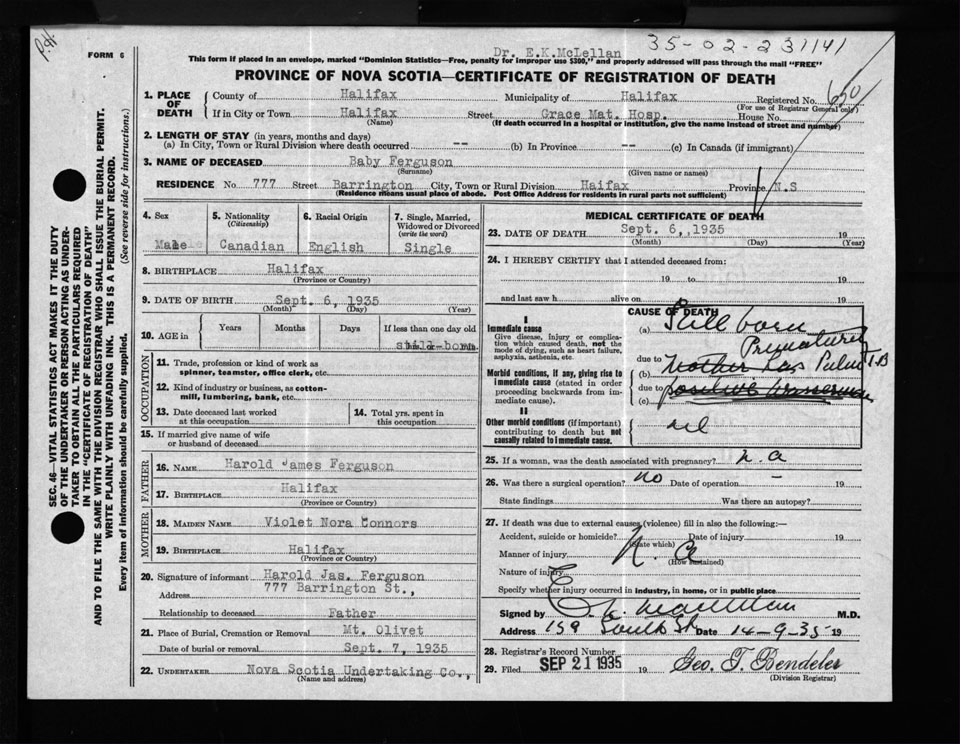 P.H.
35-02-231141
FORM 6
Dr. E.K.McLellan
This form if placed in an envelope, marked "Dominion Statistics—Free, penalty for improper use $300," and properly addressed will pass through the mail "FREE"
PROVINCE OF NOVA SCOTIA—CERTIFICATE OF REGISTRATION OF DEATH
1. PLACE OF DEATH
County of Halifax Municipality of Halifax Registered No.
(For use of Registrar General only)
If in City or Town Halifax Street Grace Mat. Hosp. House No.
(Name) (If death occurred in a hospital or institution, give the name instead of street and number)
2. LENGTH OF STAY (in years, months and days)
(a) In City, Town or Rural Division where death occurred -- (b) In Province -- (c) In Canada (if immigrant)
3. NAME OF DECEASED Baby Ferguson
(Surname) (Given name or names)
RESIDENCE No 777 Street Barrington City, Town or Rural Division Haifax Province N.S
(Residence means usual place of abode. Post Office Address for residents in rural parts not sufficient)
SEC. 46—VITAL STATISTICS ACT MAKES IT THE DUTY
OF THE UNDERTAKER OR PERSON ACTING AS UNDER-
TAKER TO OBTAIN ALL THE PARTICULARS REQUIRED
IN THE "CERTIFICATE OF REGISTRATION OF DEATH"
AND TO FILE THE SAME WITH THE DIVISION REGISTRAR WHO SHALL ISSUE THE BURIAL PERMIT.
WRITE PLAINLY WITH UNFADING INK. THIS IS A PERMANENT RECORD.
Every item of information should be carefully supplied. (See reverse side for instructions.)
4. Sex
Male
5. Nationality
(Citizenship)
Canadian
6. Racial Origin
English
7. Single, Married,
Widowed or Divorced
(write the word)
Single
8. BIRTHPLACE Halifax
(Province or Country)
9. DATE OF BIRTH Sept. 6, 1935
(Month) (Day) (Year)
10. AGE in
Years Months Days If less than one day old
still-born
OCCUPATION
11. Trade, profession or kind of work as
spinner, teamster, office clerk, etc.
12. Kind of industry or business, as cotton-
mill, lumbering, bank, etc.
13. Date deceased last worked
at this occupation
14. Total yrs. spent in
this occupation
15. If married give name of wife
or husband of deceased
FATHER
16. NAME Harold James Ferguson
17. BIRTHPLACE Halifax
(Province or Country)
MOTHER
18. MAIDEN NAME Violet Nora Connors
19. BIRTHPLACE Halifax
(Province or Country)
20. Signature of informant Harold Jas. Ferguson
Address 777 Barrington St.,
Relationship to deceased Father
21. Place of Burial, Cremation or Removal Mt. Olivet
Date of burial or removal Sept. 7, 1935
22. UNDERTAKER Nova Scotia Undertaking Co.,
(Name and address)
MEDICAL CERTIFICATE OF DEATH
23. DATE OF DEATH Sept. 6, 1935 19
(Month) (Day) (Year)
24. I HEREBY CERTIFY that I attended deceased from:
19 to 19
and last saw h alive on 19
CAUSE OF DEATH
I
Immediate cause
Give disease, injury or complica-
tion which caused death, not the
mode of dying, such as heart failure,
asphyxia, asthenia, etc.
Morbid conditions, if any, giving rise to
immediate cause (stated in order
proceeding backwards from im-
mediate cause).
II
Other morbid conditions (if important)
contributing to death but not
causally related to immediate cause.
(a) Still born
Prematurity
due to
(b) Mother has Pulm TB
due to
(c) positive
nil
25. If a woman, was the death associated with pregnancy? n.a
26. Was there a surgical operation? no Date of operation - 19
State findings Was there an autopsy?
27. If death was due to external causes (violence) fill in also the following:—
Accident, suicide or homicide? Date of injury 19
(State which)
Manner of injury N. a
(How sustained)
Nature of injury
Specify whether injury occurred in industry, in home, or in public place
Signed by M.D.
Address 159 South St Date 14-9-35 19
28. Registrar's Record Number
29. Filed SEP 21 1935 19 Geo. T. Bendeler
(Division Registrar)